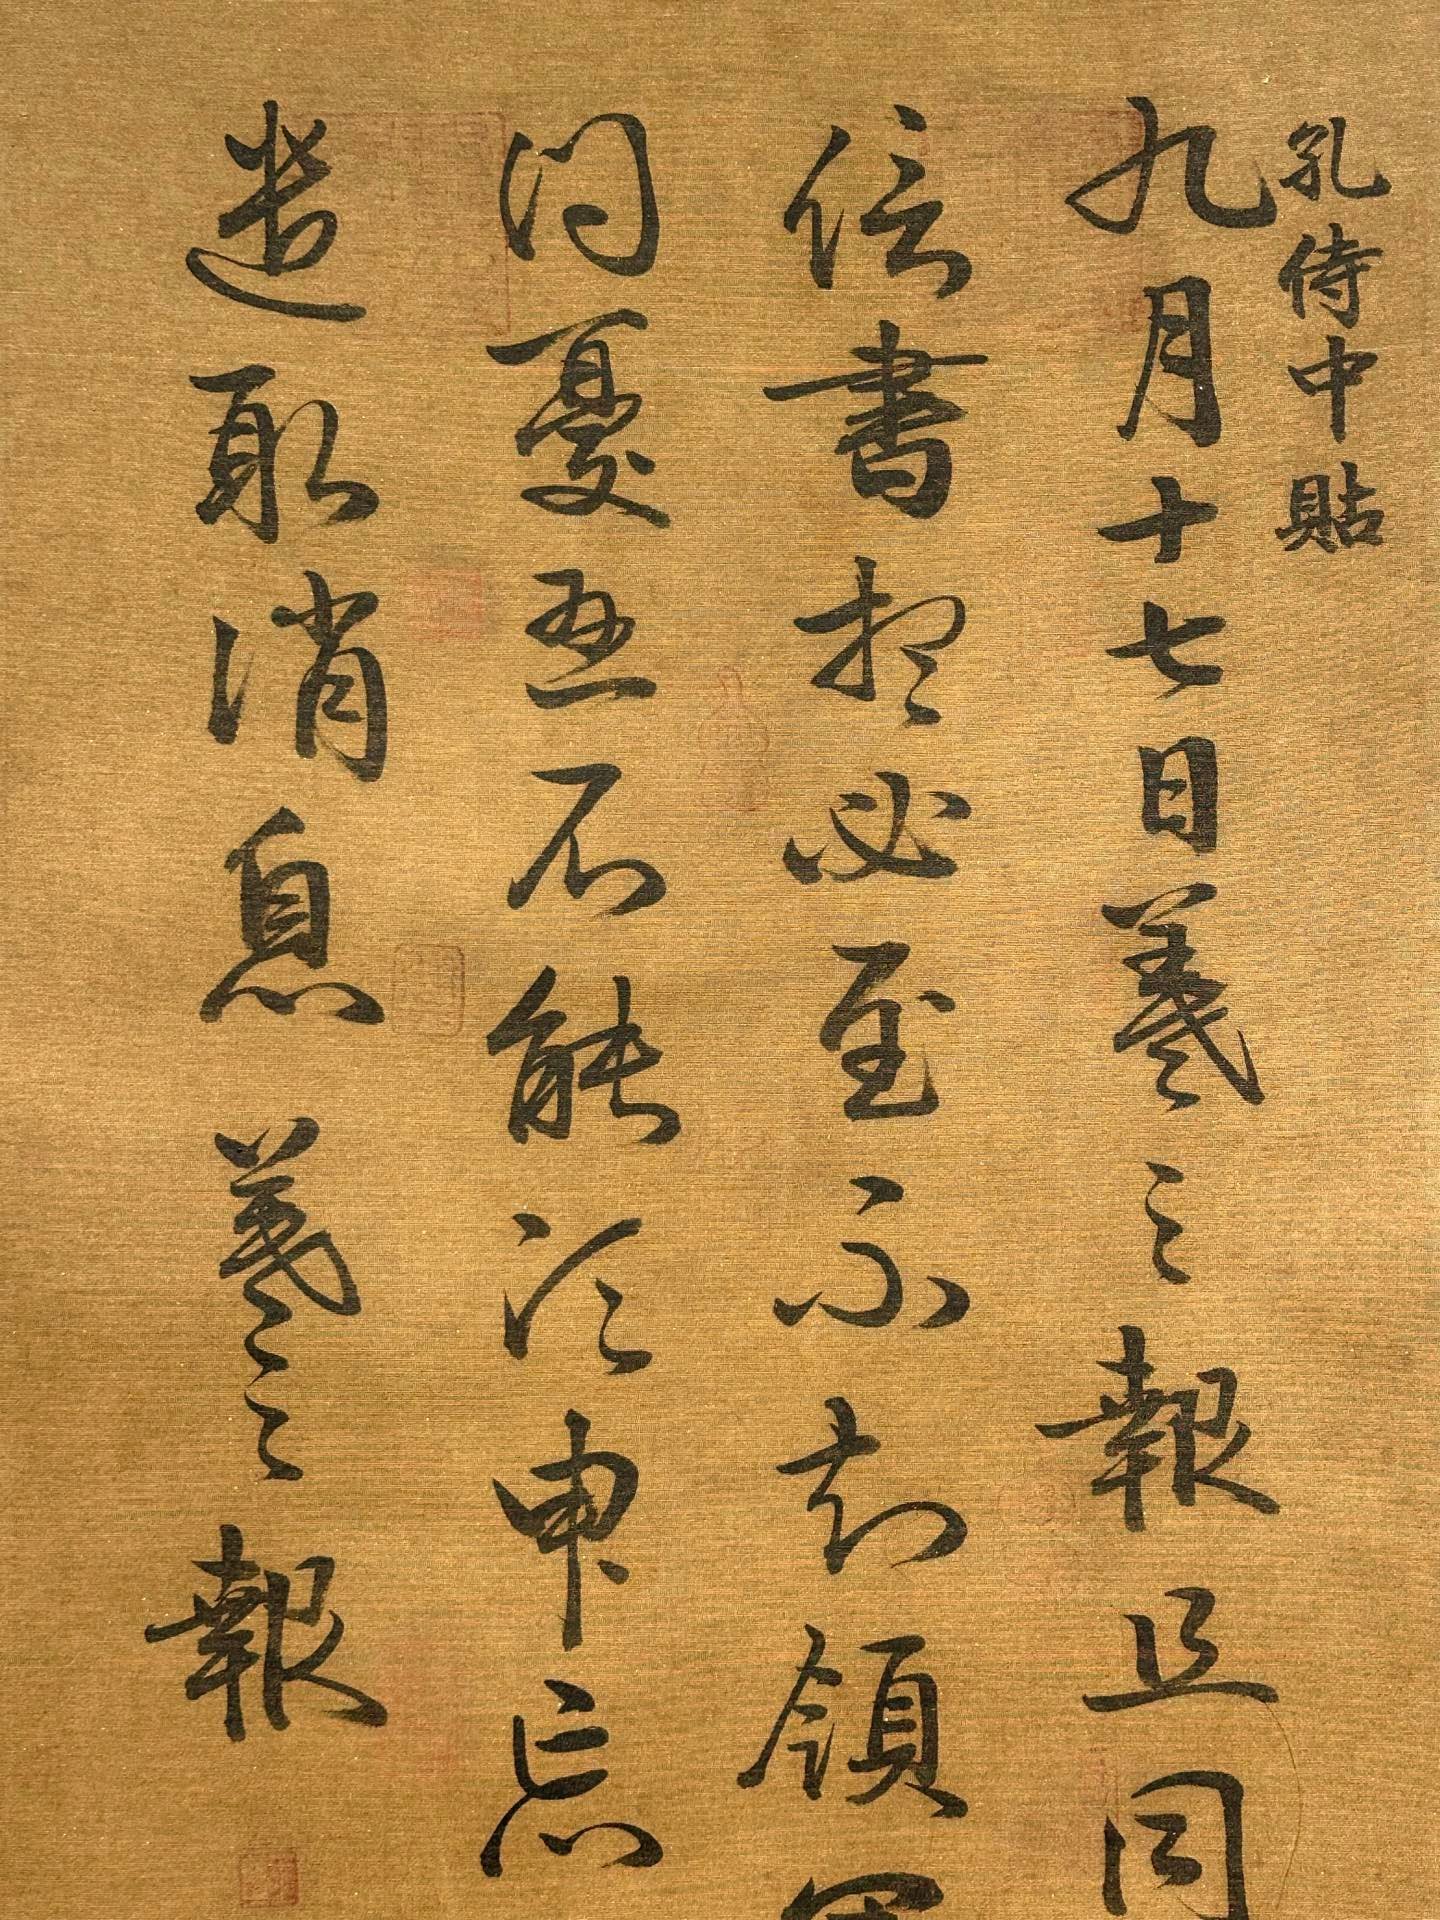 孔侍中貼
九月十七日羲之報且因
信書想必至不知領
問憂懸不能須臾忘
遣取消息羲之報